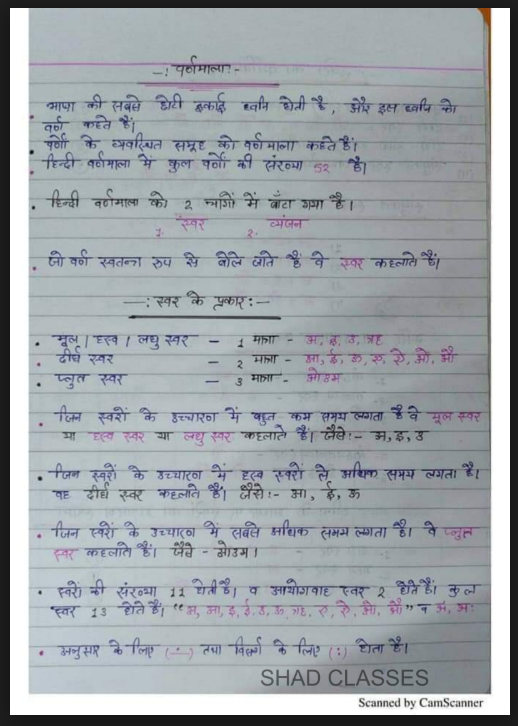 —: वर्णमाला:-
• भाषा की सबसे छोटी इकाई ध्वनि होती है, और इस ध्वनि को
वर्ण कहते हैं।
• वर्णों के व्यवस्थित समूह को वर्णमाला कहते हैं।
• हिन्दी वर्णमाला में कुल वर्णों की संख्या 52 है।
• हिन्दी वर्णमाला को 2 भागों में बाँटा गया है।
1. स्वर 2. व्यंजन
• जो वर्ण स्वतन्त्र रुप से बोले जाते हैं वे स्वर कहलाते हैं।
—: स्वर के प्रकार:—
• मूल / ह्रस्व / लघु स्वर — 1 मात्रा - अ, इ, उ, ऋ
• दीर्घ स्वर — 2 मात्रा - आ, ई, ऊ, ए, ऐ, ओ, औ
• प्लुत स्वर — 3 मात्रा - ओउम
• जिन स्वरों के उच्चारण में बहुत कम समय लगता है वे मूल स्वर
या ह्रस्व स्वर या लघु स्वर कहलाते हैं। जैसे:- अ, इ, उ
• जिन स्वरों के उच्चारण में ह्रस्व स्वरों से अधिक समय लगता है।
वह दीर्घ स्वर कहलाते हैं। जैसे:- आ, ई, ऊ
• जिन स्वरों के उच्चारण में सबसे अधिक समय लगता है। वे प्लुत
स्वर कहलाते हैं। जैसे - ओउम।
• स्वरों की संख्या 11 होती है। व आयोगवाह स्वर 2 होते हैं। कुल
स्वर 13 होते हैं। "अ, आ, इ, ई, उ, ऊ, ऋ, ए, ऐ, ओ, औ" व अं, अः
• अनुसार के लिए (∸) तथा विसर्ग के लिए (:) होता है।
SHAD CLASSES
Scanned by CamScanner